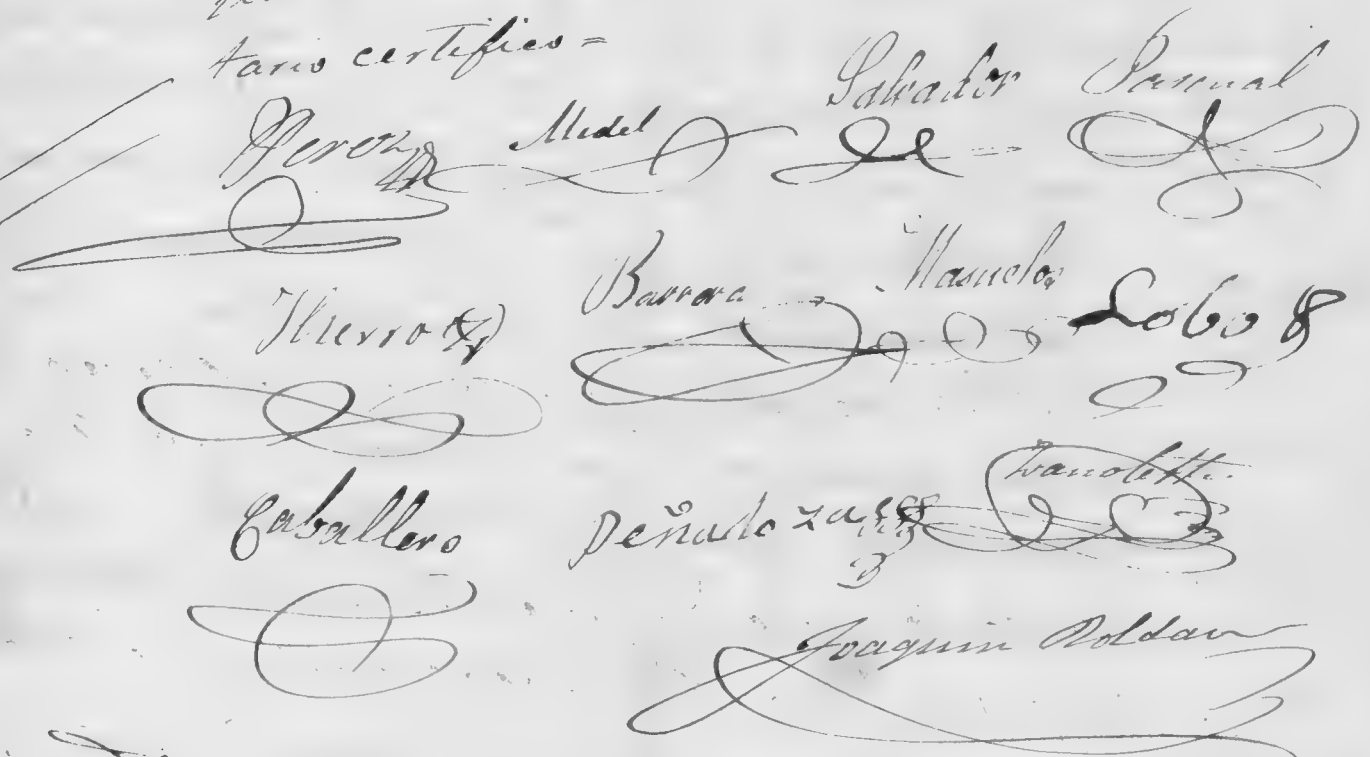 tario certifico =
Perez Medel Salvador Pascual
Hierro Barrera Manuel Lobo
Caballero Peñaloza
Joaquin Roldan